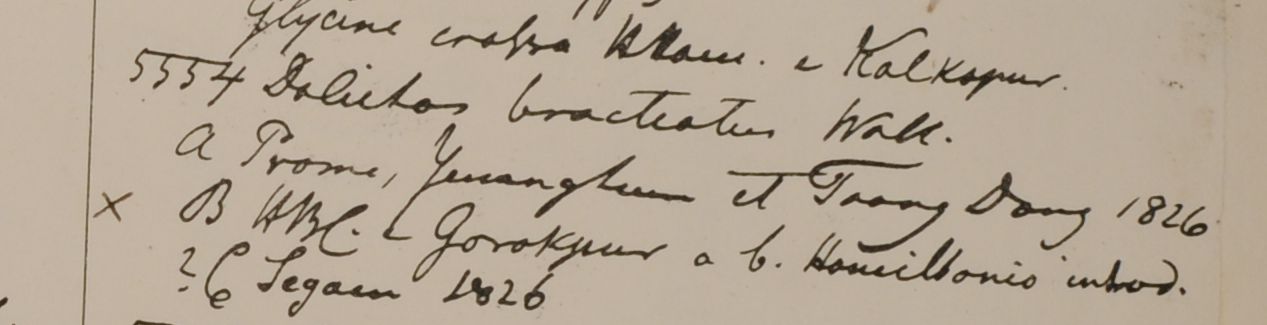 Glycine crassa HHam. e Kalkapur.
5554 Dolichos bracteatus Wall.
a Prome, Yenanghum et Taong Dong 1826
× B HBC. e Gorakpur a b. Hamiltonio introd.
? C Segaen 1826